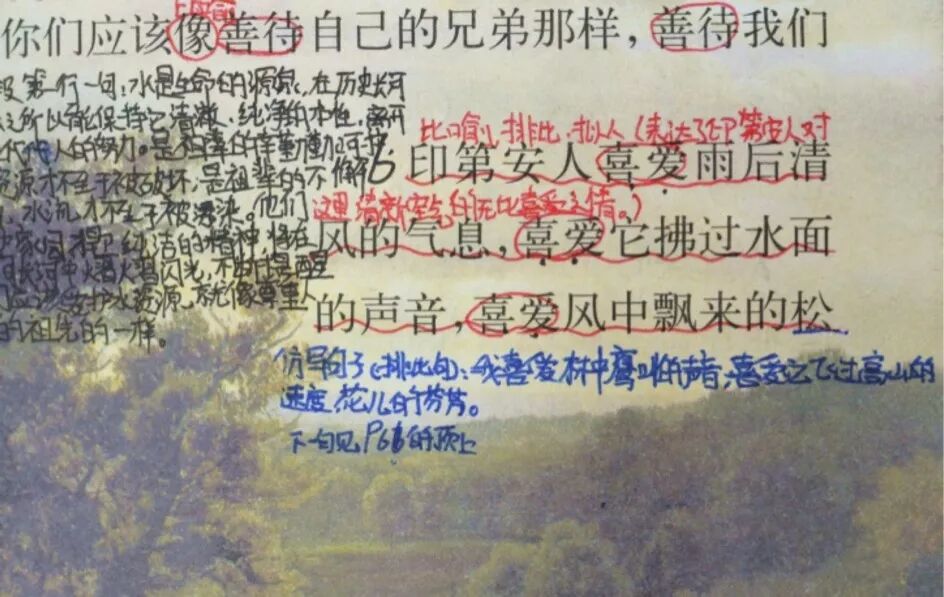 上段前
你们应该像善待自己的兄弟那样，善待我们
段第一行一句：水是生命的源泉，在历史长河
之所以能保持它清澈、纯净的本性，离开
代代人的努力。是祖辈的辛勤
资源才不至于被破坏；是祖辈的不懈
水流才不至于被漂染。他们
纯洁的精神，将在
长河中熠熠闪光，不断提醒
们应该爱护水资源，就像尊重
的祖先的一样。
比喻、排比、拟人（表达了印第安人对
6 印第安人喜爱雨后清
这里清新空气的无比喜爱之情。）
风的气息，喜爱它拂过水面
的声音，喜爱风中飘来的松
仿写句子（排比句）：我喜爱林中鸟的声音，喜爱它飞过高山的
速度，花儿的芬芳。
下句见P66的顶上